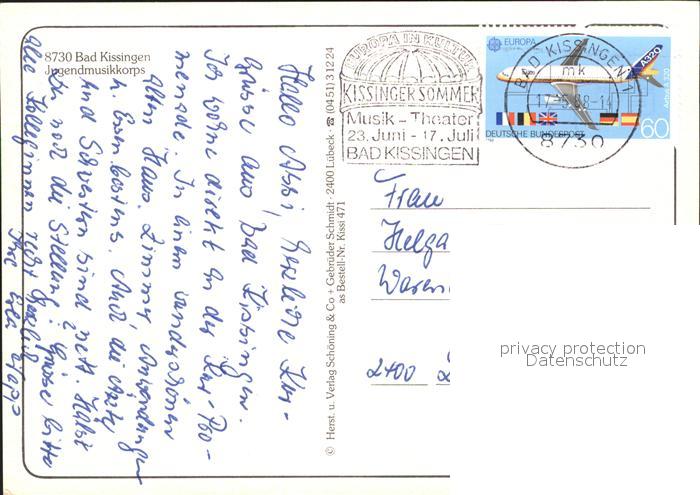 8730 Bad Kissingen
Jugendmusikkorps
Hallo Assi, herzliche Kur-
Grüsse aus Bad Kissingen.
Ich wohne direkt in der Kur-Pro-
menade. In einem
alten Haus. Zimmer,
u. Essen bestens. Auch die Ärzte
und Schwestern sind nett. Hälst
Du noch die Stellung? Grüsse bitte
alle Kolleginnen recht herzlich
Ihre
© Herst. u. Verlag Schöning & Co + Gebrüder Schmidt · 2400 Lübeck · ☎ (04 51) 3 12 24
as Bestell-Nr. Kissi 471
EUROPA IN KULTUR
KISSINGER SOMMER
Musik - Theater
23. Juni - 17. Juli
BAD KISSINGEN
EUROPA
A320
Airbus A 320
DEUTSCHE BUNDESPOST
60
BAD KISSINGEN 1
mk
8730
Frau
Helga
Waren
2400 L
privacy protection
Datenschutz